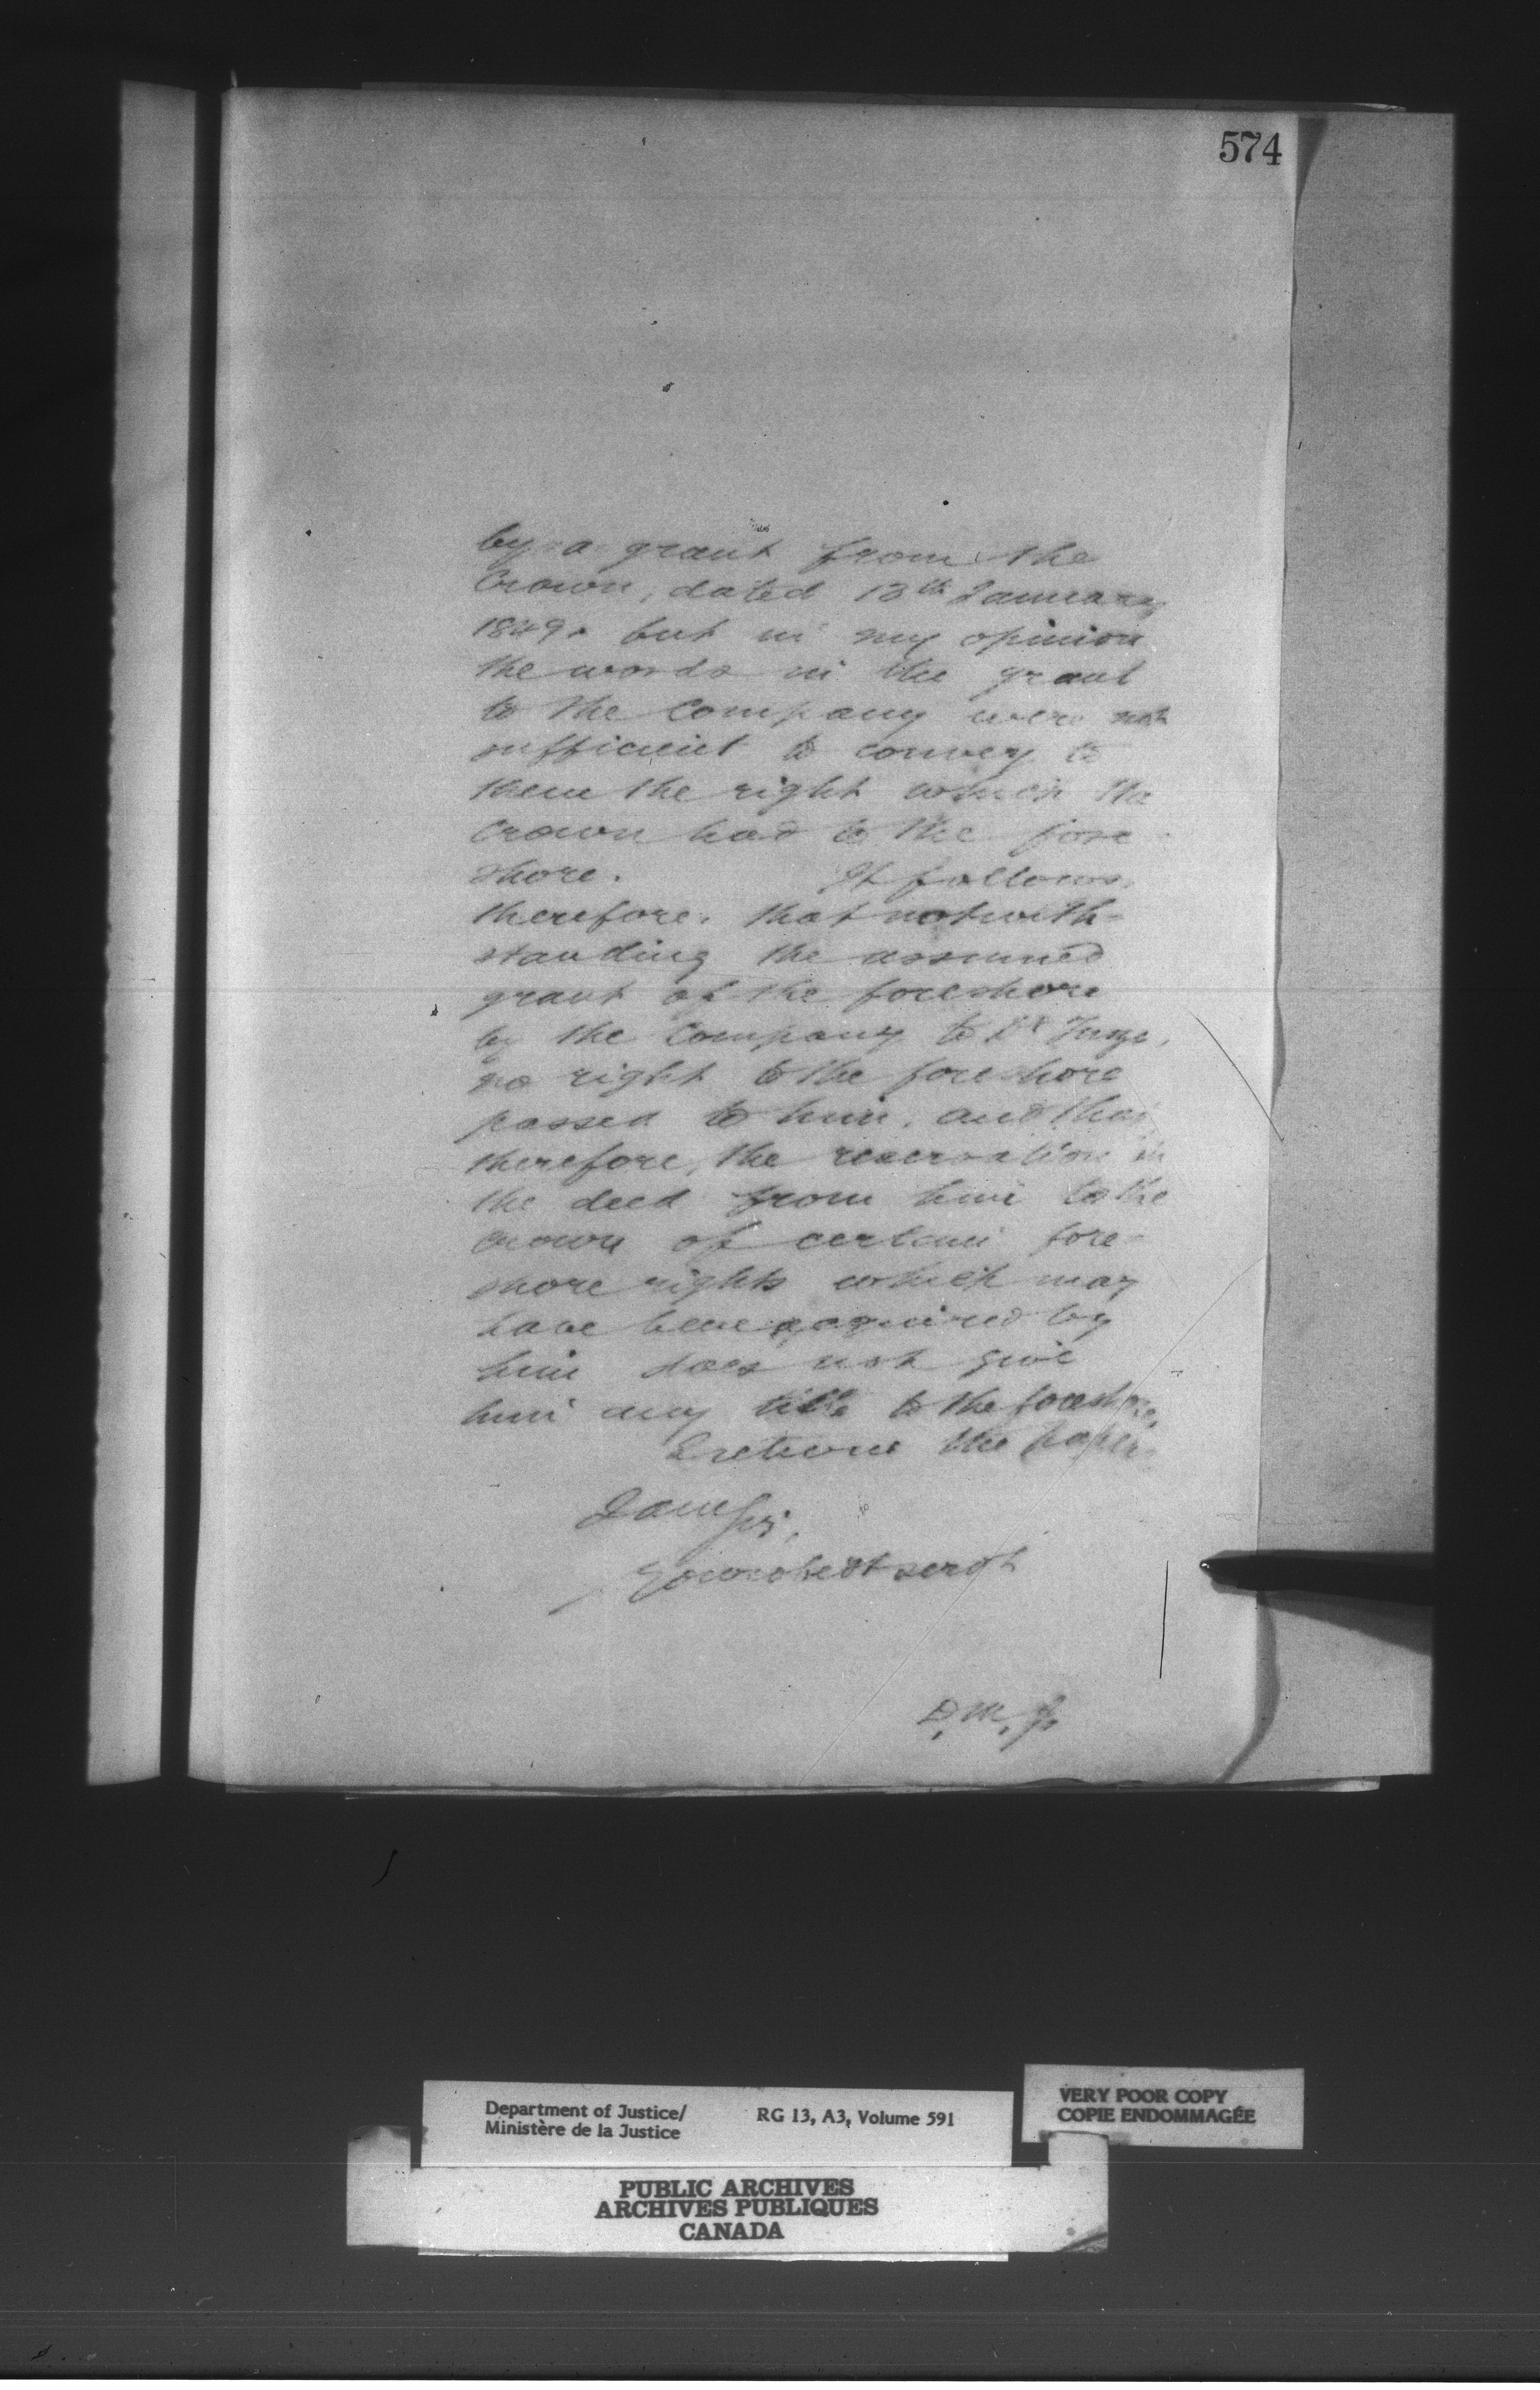 574
by a grant from the
Crown, dated 13th January
1849. but in my opinion
the words in the grant
to the Company were not
sufficient to convey to
them the right which the
Crown had to the fore
shore. It follows,
therefore, that notwith-
standing the assumed
grant of the foreshore
by the Company to
no right to the foreshore
passed to him, and that
therefore, the reservation in
the deed from him to the
Crown of certain fore-
shore rights which may
have been acquired by
him does not give
him any title to the foreshore.
I return the papers
I am Sir,
Your obedt servt
D.M.J.
Department of Justice/
Ministère de la Justice
RG 13, A3, Volume 591
VERY POOR COPY
COPIE ENDOMMAGÉE
PUBLIC ARCHIVES
ARCHIVES PUBLIQUES
CANADA